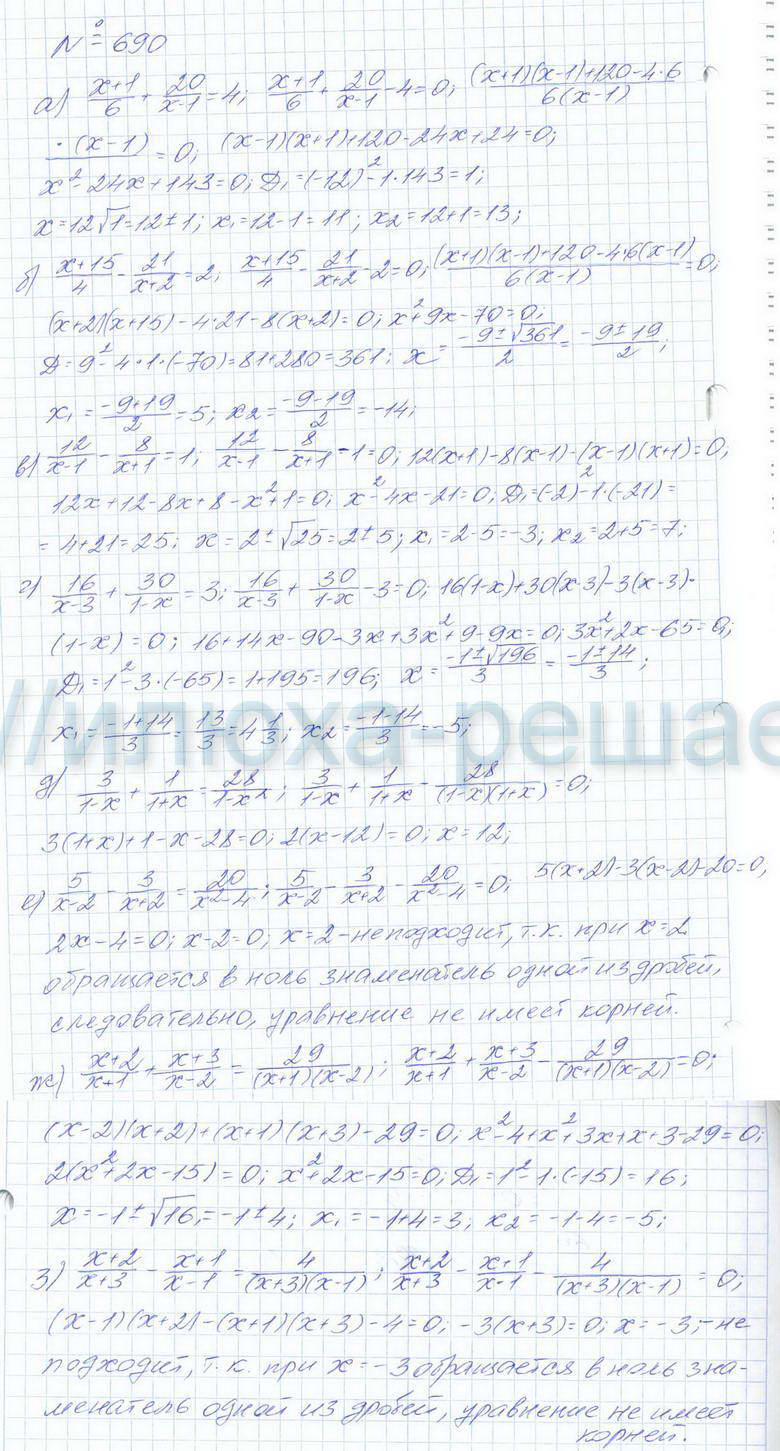 № 690
а) (x+1)/6 + 20/(x-1) = 4; (x+1)/6 + 20/(x-1) - 4 = 0; ((x+1)(x-1)+120-4·6
·(x-1))/(6(x-1)) = 0; (x-1)(x+1)+120-24x+24=0;
x²-24x+143=0; D₁=(-12)²-1·143=1;
x=12√1=12±1; x₁=12-1=11; x₂=12+1=13;
б) (x+15)/4 - 21/(x+2) = 2; (x+15)/4 - 21/(x+2) - 2 = 0; ((x+1)(x-1)+120-4·6(x-1))/(6(x-1)) = 0;
(x+2)(x+15)-4·21-8(x+2)=0; x²+9x-70=0;
D=9²-4·1·(-70)=81+280=361; x = (-9±√361)/2 = (-9±19)/2;
x₁ = (-9+19)/2 = 5; x₂ = (-9-19)/2 = -14;
в) 12/(x-1) - 8/(x+1) = 1; 12/(x-1) - 8/(x+1) - 1 = 0; 12(x+1)-8(x-1)-(x-1)(x+1)=0;
12x+12-8x+8-x²+1=0; x²-4x-21=0; D₁=(-2)²-1·(-21)=
=4+21=25; x=2±√25=2±5; x₁=2-5=-3; x₂=2+5=7;
г) 16/(x-3) + 30/(1-x) = 3; 16/(x-3) + 30/(1-x) - 3 = 0; 16(1-x)+30(x-3)-3(x-3)·
(1-x)=0; 16+14x-90-3x+3x²+9-9x=0; 3x²+2x-65=0;
D₁=1²-3·(-65)=1+195=196; x = (-1±√196)/3 = (-1±14)/3;
x₁ = (-1+14)/3 = 13/3 = 4 1/3; x₂ = (-1-14)/3 = -5;
//илюха-решае
д) 3/(1-x) + 1/(1+x) = 28/(1-x²); 3/(1-x) + 1/(1+x) - 28/((1-x)(1+x)) = 0;
3(1+x)+1-x-28=0; 2(x-12)=0; x=12;
е) 5/(x-2) - 3/(x+2) = 20/(x²-4); 5/(x-2) - 3/(x+2) - 20/(x²-4) = 0; 5(x+2)-3(x-2)-20=0,
2x-4=0; x-2=0; x=2 - не подходит, т.к. при x=2
обращается в ноль знаменатель одной из дробей,
следовательно, уравнение не имеет корней.
ж) (x+2)/(x+1) + (x+3)/(x-2) = 29/((x+1)(x-2)); (x+2)/(x+1) + (x+3)/(x-2) - 29/((x+1)(x-2)) = 0;
(x-2)(x+2)+(x+1)(x+3)-29=0; x²-4+x²+3x+x+3-29=0;
2(x²+2x-15)=0; x²+2x-15=0; D₁=1²-1·(-15)=16;
x=-1±√16=-1±4; x₁=-1+4=3, x₂=-1-4=-5;
з) (x+2)/(x+3) - (x+1)/(x-1) = 4/((x+3)(x-1)); (x+2)/(x+3) - (x+1)/(x-1) - 4/((x+3)(x-1)) = 0;
(x-1)(x+2)-(x+1)(x+3)-4=0; -3(x+3)=0; x=-3; - не
подходит, т.к. при x=-3 обращается в ноль зна-
менатель одной из дробей, уравнение не имеет
корней.